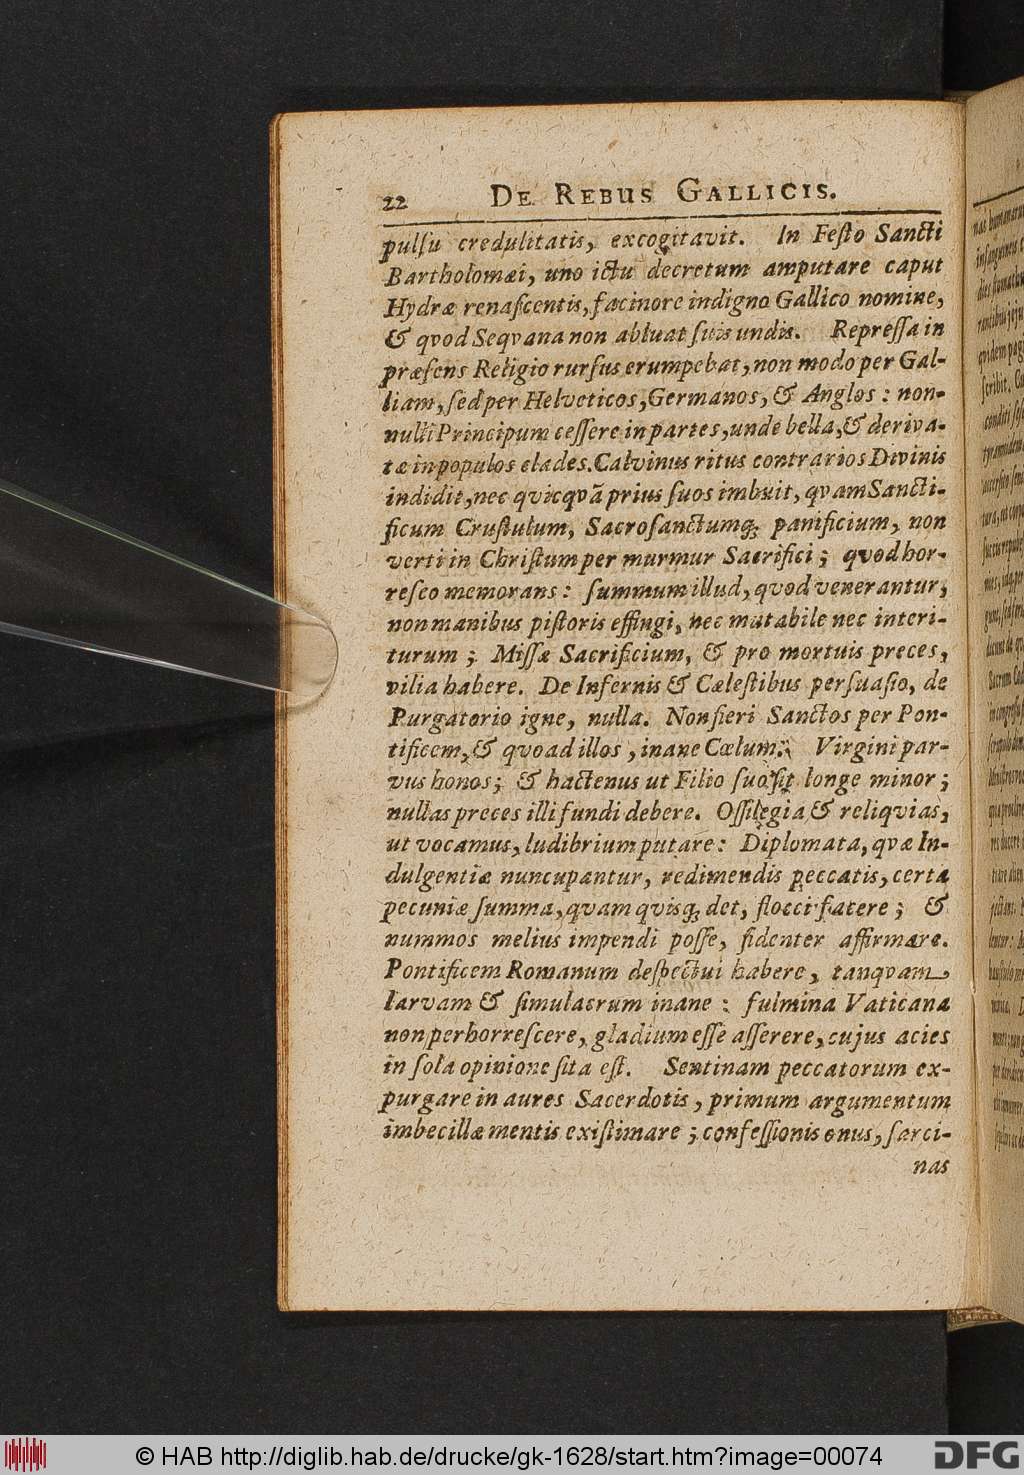 22 DE REBUS GALLICIS.
pulſu credulitatis, excogitavit. In Feſto Sancti
Bartholomæi, uno ictu decretum amputare caput
Hydræ renaſcentis, facinore indigno Gallico nomine,
& qvod Seqvana non abluat ſuis undis. Repreſſa in
præſens Religio rurſus erumpebat, non modo per Gal-
liam, ſed per Helveticos, Germanos, & Anglos : non-
nulli Principum ceſſere in partes, unde bella, & deriva-
tæ in populos clades. Calvinus ritus contrarios Divinis
indidit, nec qvicqvã prius ſuos imbuit, qvam Sancti-
ficum Cruſtulum, Sacroſanctumqꝫ panificium, non
verti in Chriſtum per murmur Sacrifici ; qvod hor-
reſco memorans : ſummum illud, qvod venerantur,
non manibus piſtoris effingi, nec mutabile nec interi-
turum ; Miſſæ Sacrificium, & pro mortuis preces,
vilia habere. De Infernis & Cæleſtibus perſuaſio, de
Purgatorio igne, nulla. Non fieri Sanctos per Pon-
tificem, & qvoad illos, inane Cœlum. Virgini par-
vus honos ; & hactenus ut Filio ſuo ſit longe minor ;
nullas preces illi fundi debere. Oſſilegia & reliqvias,
ut vocamus, ludibrium putare : Diplomata, qvæ In-
dulgentiæ nuncupantur, redimendis peccatis, certa
pecuniæ ſumma, qvam qvisqꝫ det, flocci facere ; &
nummos melius impendi poſſe, fidenter affirmare.
Pontificem Romanum deſpectui habere, tanqvam
larvam & ſimulacrum inane : fulmina Vaticana
non perhorreſcere, gladium eſſe aſſerere, cujus acies
in ſola opinione ſita eſt. Sentinam peccatorum ex-
purgare in aures Sacerdotis, primum argumentum
imbecillæ mentis exiſtimare ; confeſſionis onus, ſarci-
nas
© HAB http://diglib.hab.de/drucke/gk-1628/start.htm?image=00074
DFG